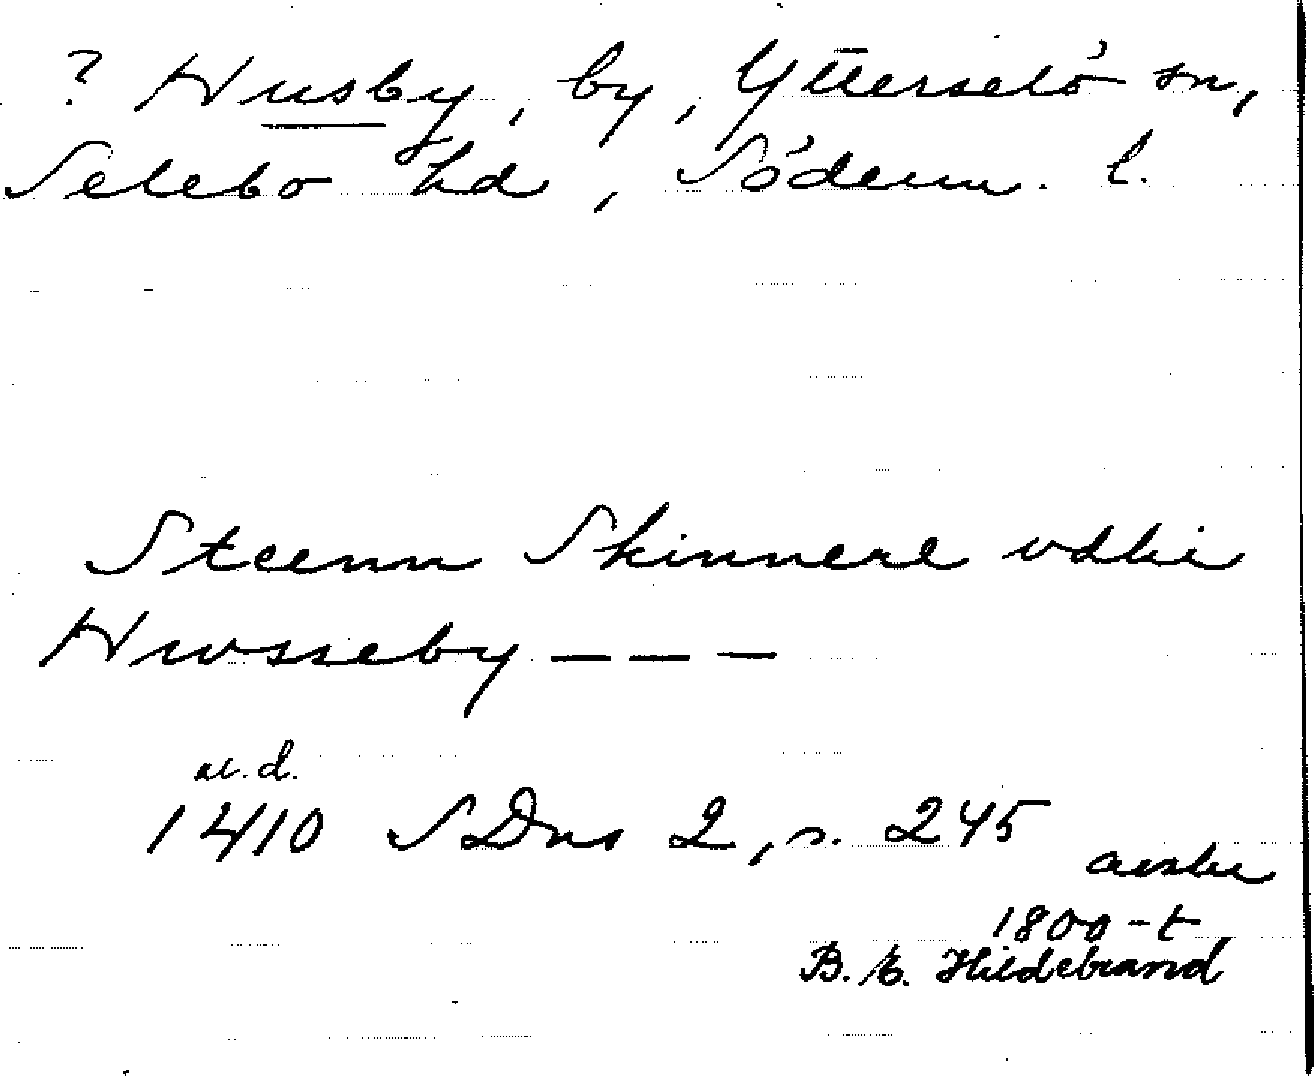 ? Husby, by, Ytterselö sn,
Selebo hd, Söderm. l.
Steenn Skinnere vdhi
Hwsseby – – –
u.d.
1410 SDns 2, s. 245
avskr
1800-t
B. E. Hildebrand